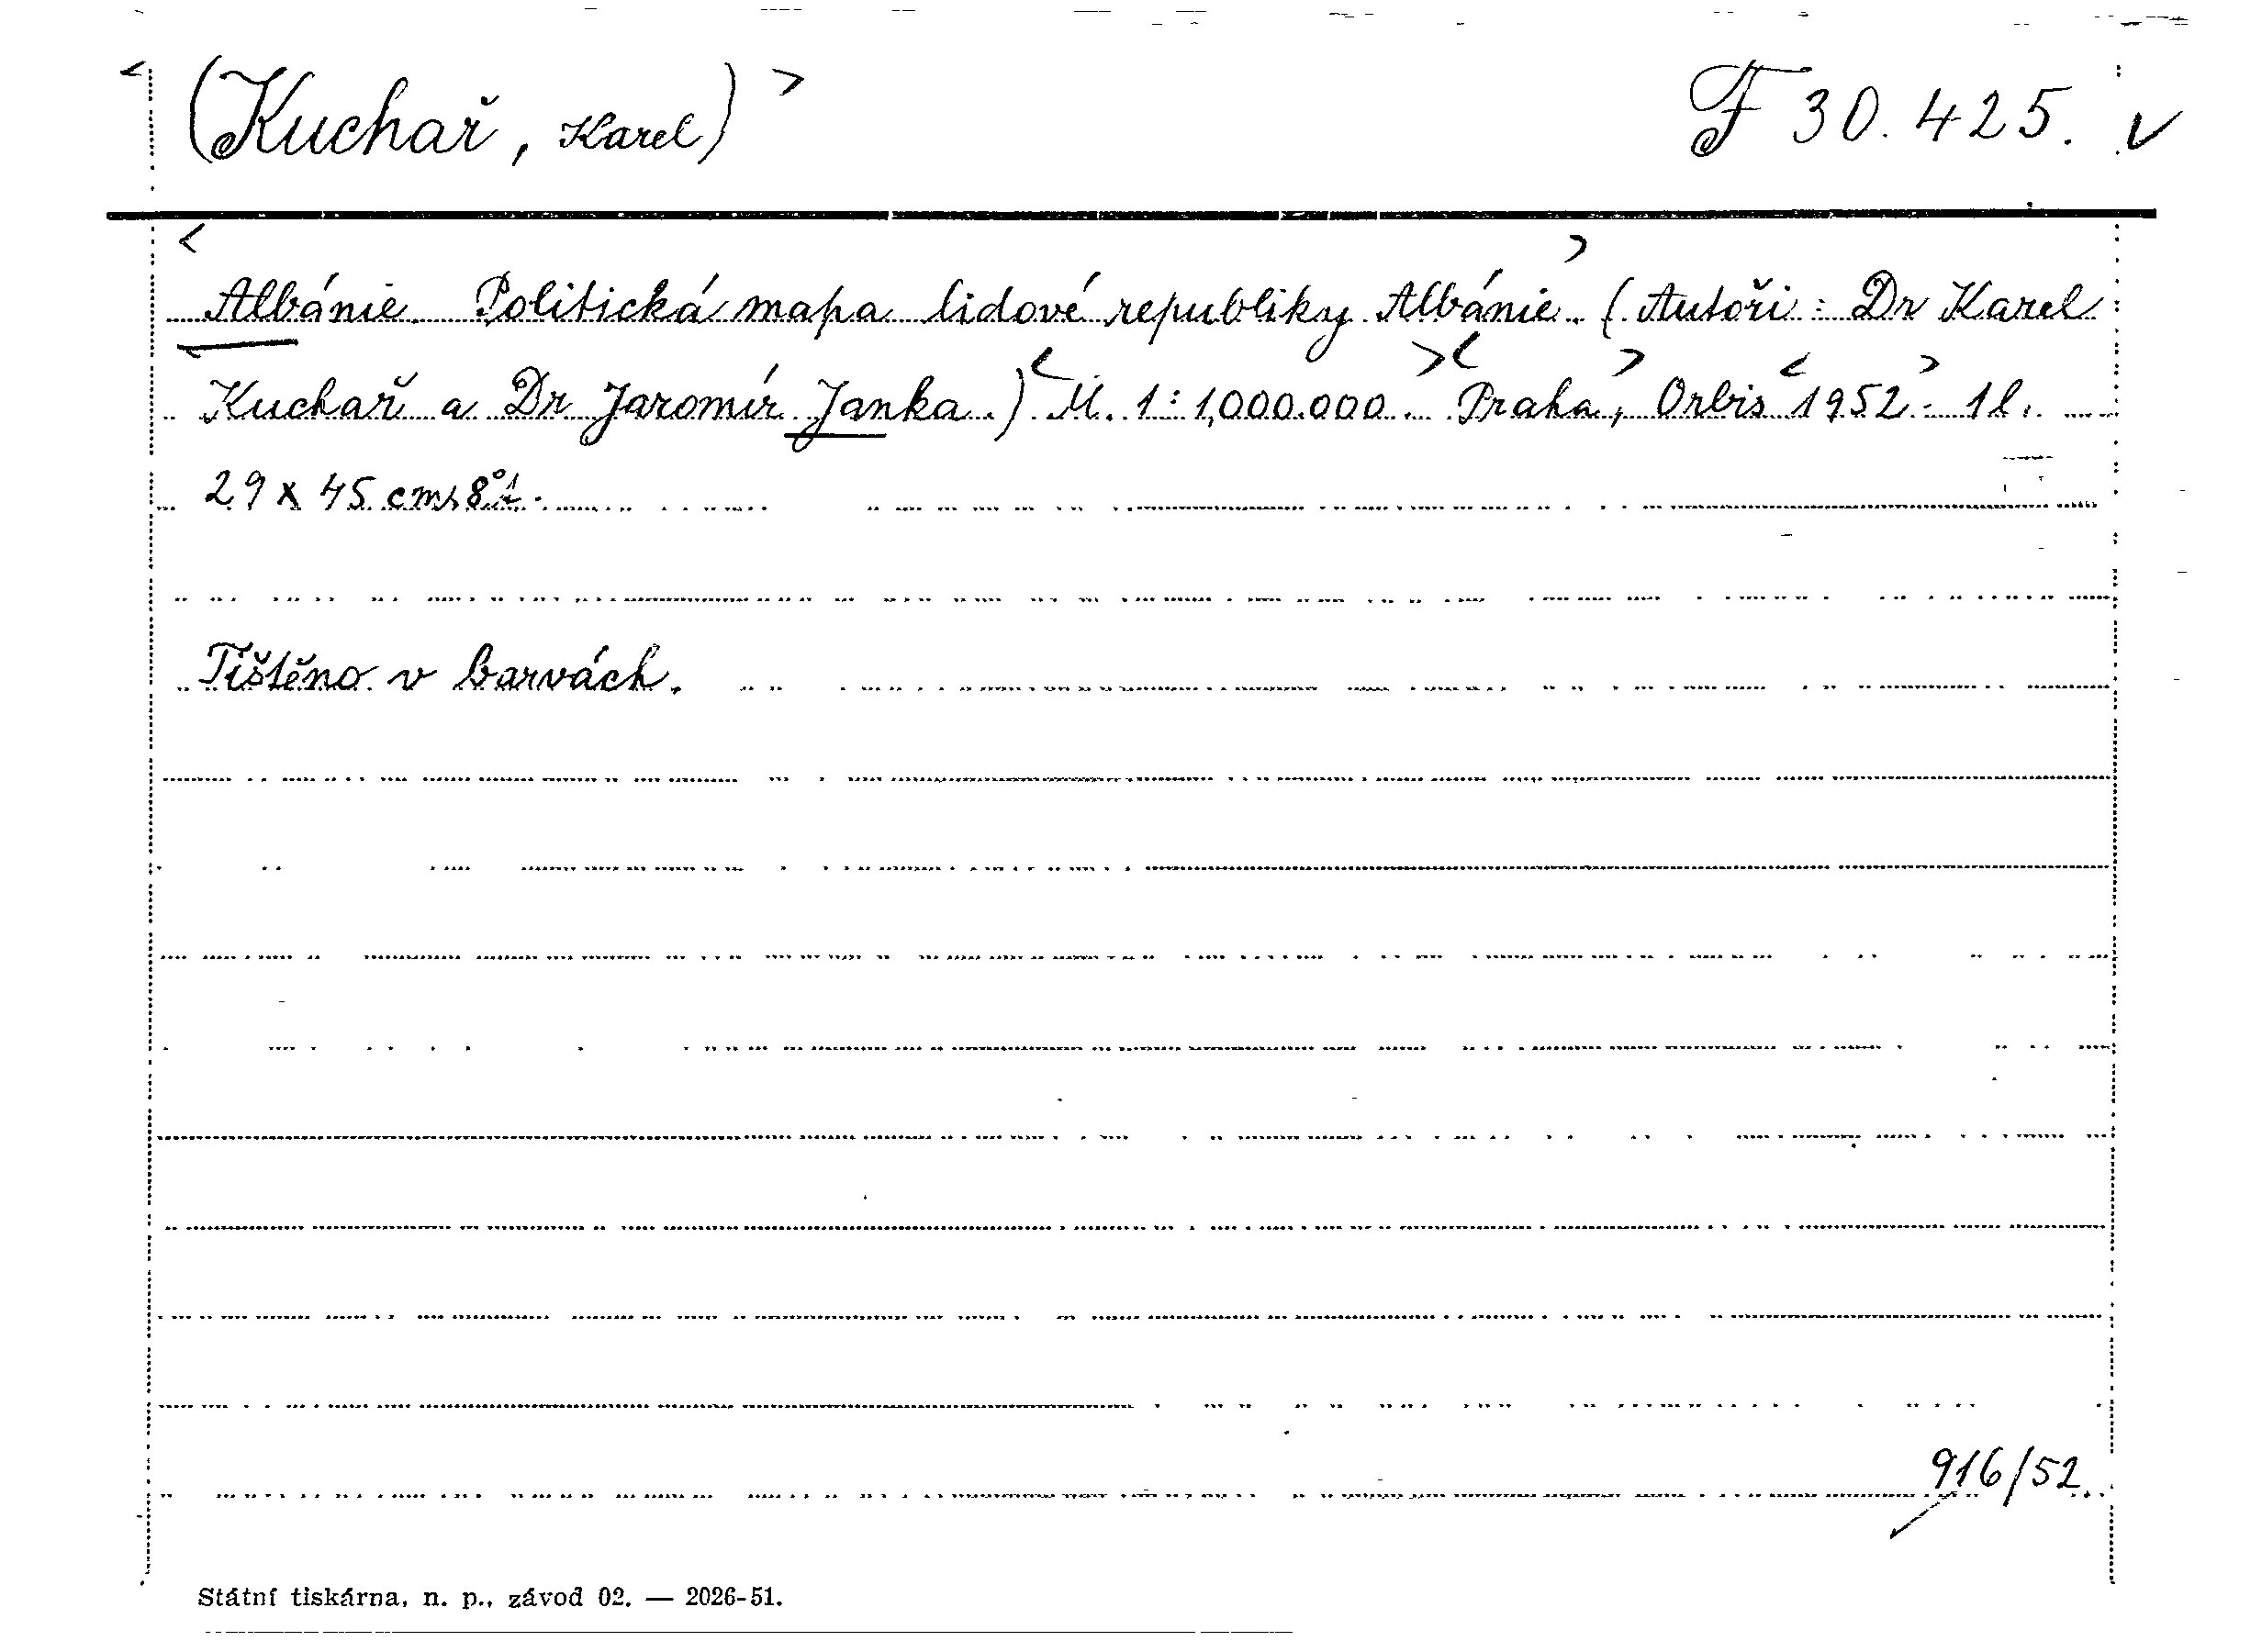 <(Kuchař, Karel)> F 30.425. v
<Albánie. Politická mapa lidové republiky Albánie>. (Autoři: Dr Karel
Kuchař a Dr Jaromír Janka.) <M. 1:1,000.000.> <Praha>, Orbis <1952>. 1 l.
29 x 45 cm, 8°.
Tištěno v barvách.
916/52.
Státní tiskárna, n. p., závod 02. — 2026-51.